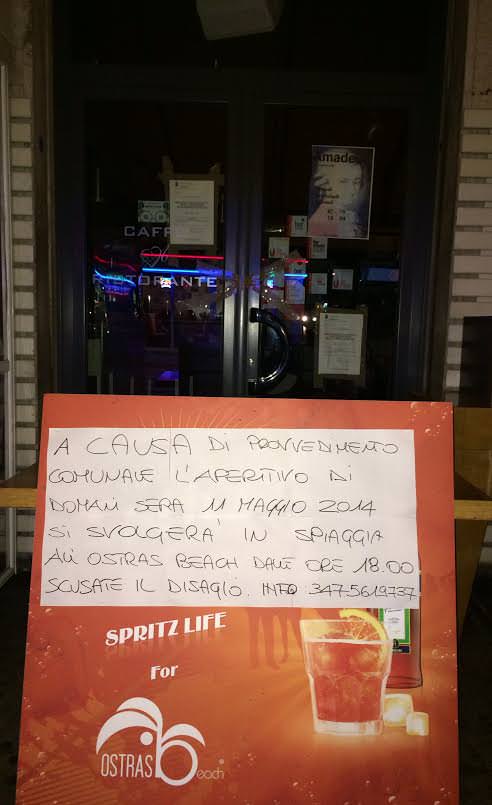 Amade
CAFF
RISTORANTE
A CAUSA DI PROVVEDIMENTO
COMUNALE L'APERITIVO DI
DOMANI SERA 11 MAGGIO 2014
SI SVOLGERA' IN SPIAGGIA
ALL' OSTRAS BEACH DALLE ORE 18.00
SCUSATE IL DISAGIO. INFO 347-5619737
SPRITZ LIFE
For
OSTRAS Beach